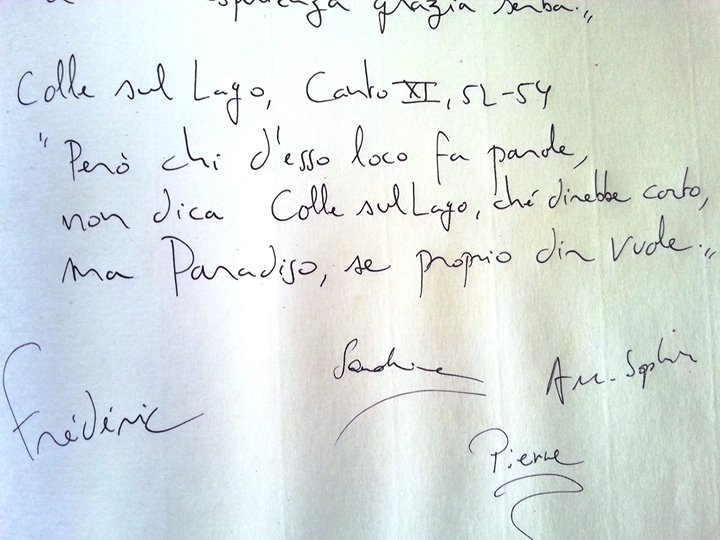 grazia serba.„
Colle sul Lago, Canto XI, 52-54
"Però chi d'esso loco fa parole,
non dica Colle sul Lago, ché direbbe corto,
ma Paradiso, se proprio dir vuole.„
Sandrine
Frédéric
Pierre